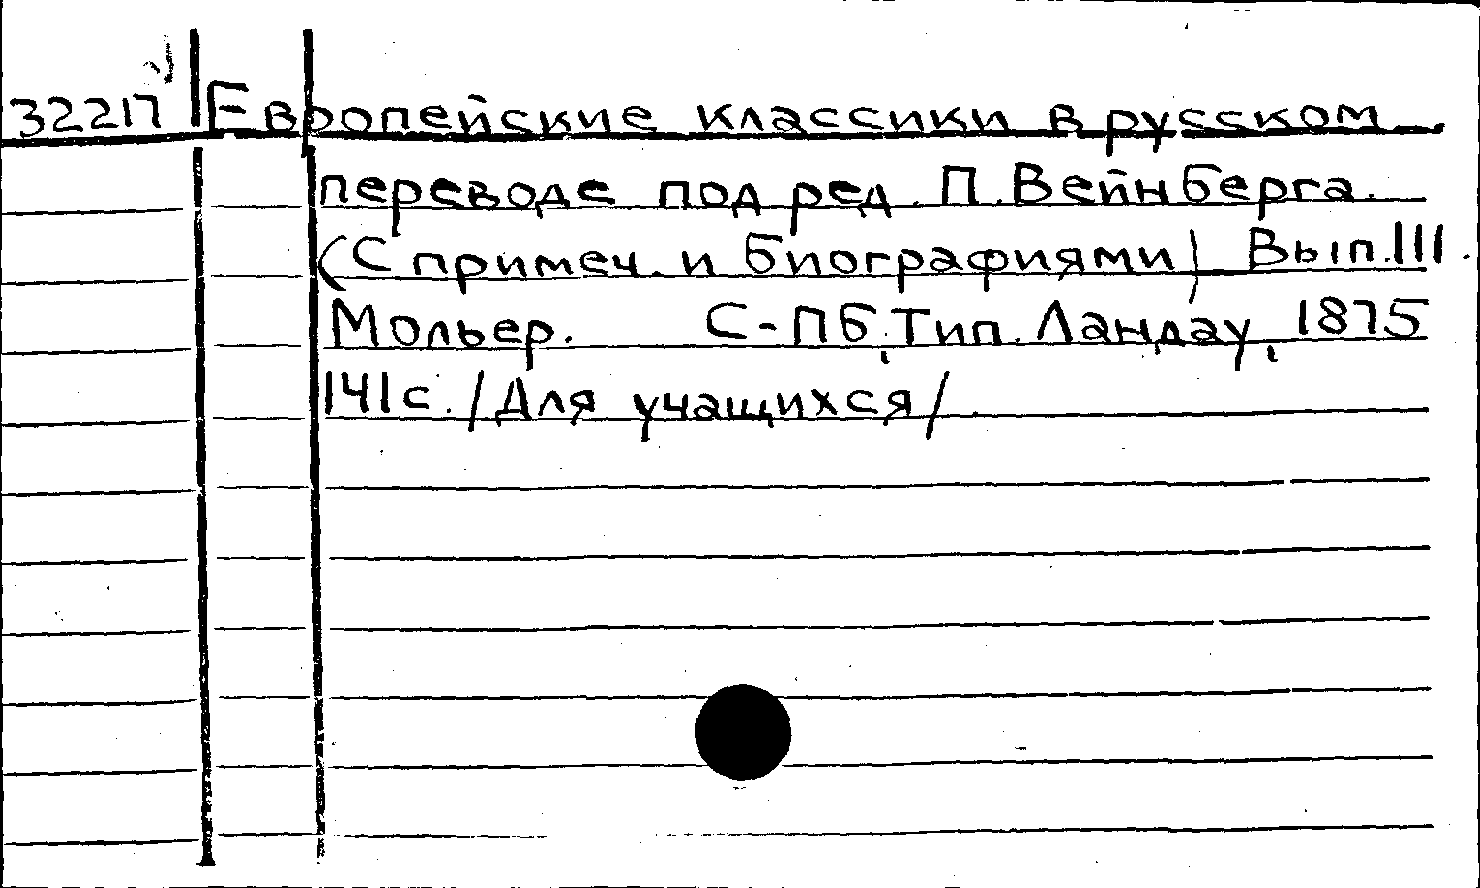 32217 Европейские классики в русском
переводе под ред. П. Вейнберга.
(С примеч. и биографиями) Вып. III.
Мольер. С-ПБ, Тип. Ландау, 1875
141с. /Для учащихся/